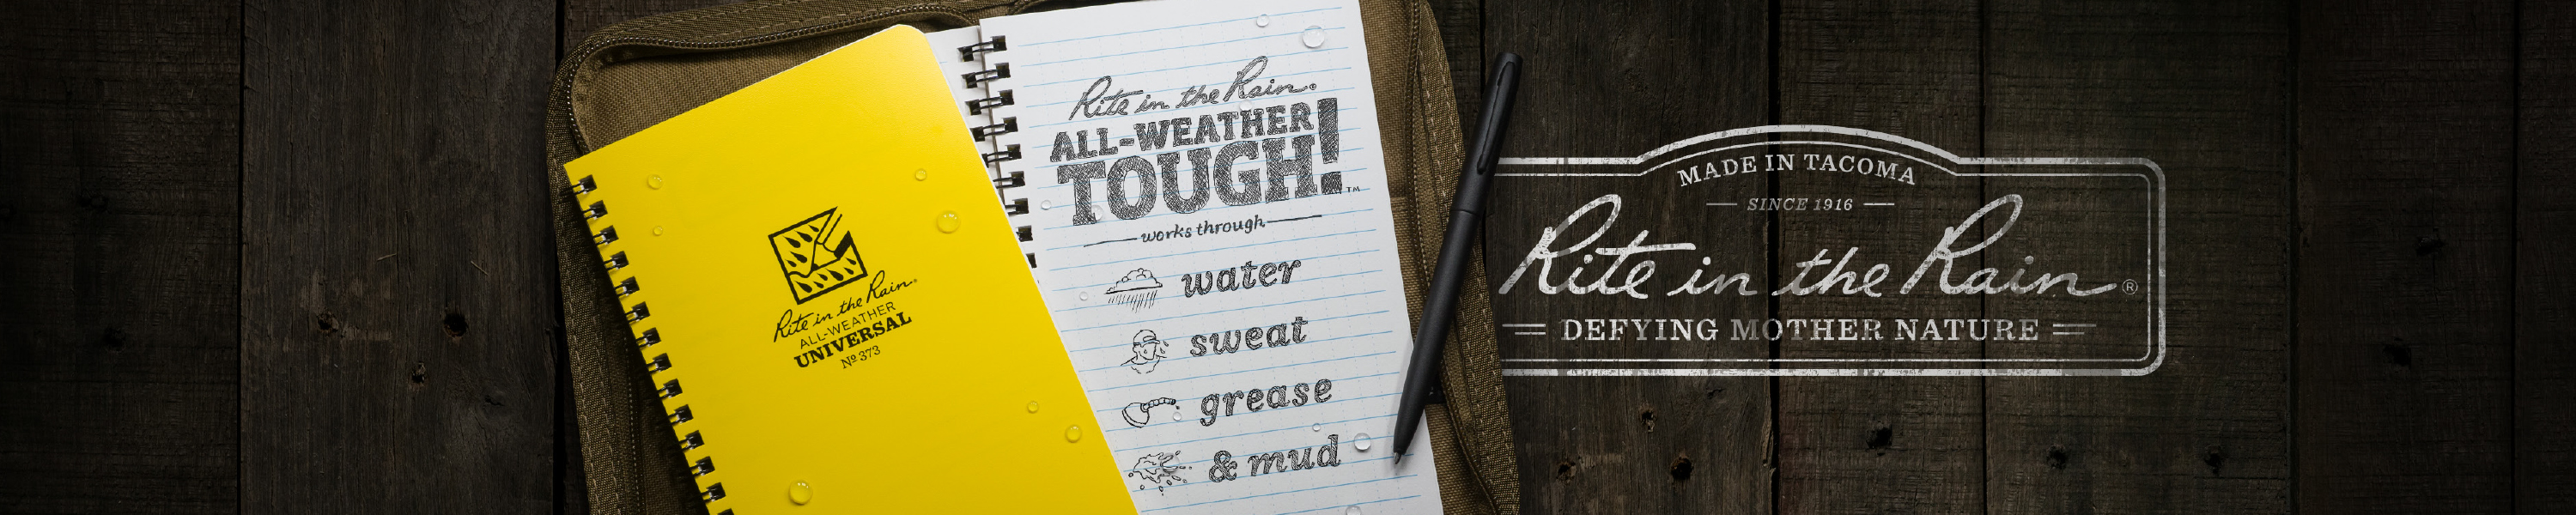 Rite in the Rain®
ALL-WEATHER
UNIVERSAL
№ 373
Rite in the Rain®
ALL-WEATHER
TOUGH!™
works through
water
sweat
grease
& mud
MADE IN TACOMA
SINCE 1916
Rite in the Rain®
DEFYING MOTHER NATURE